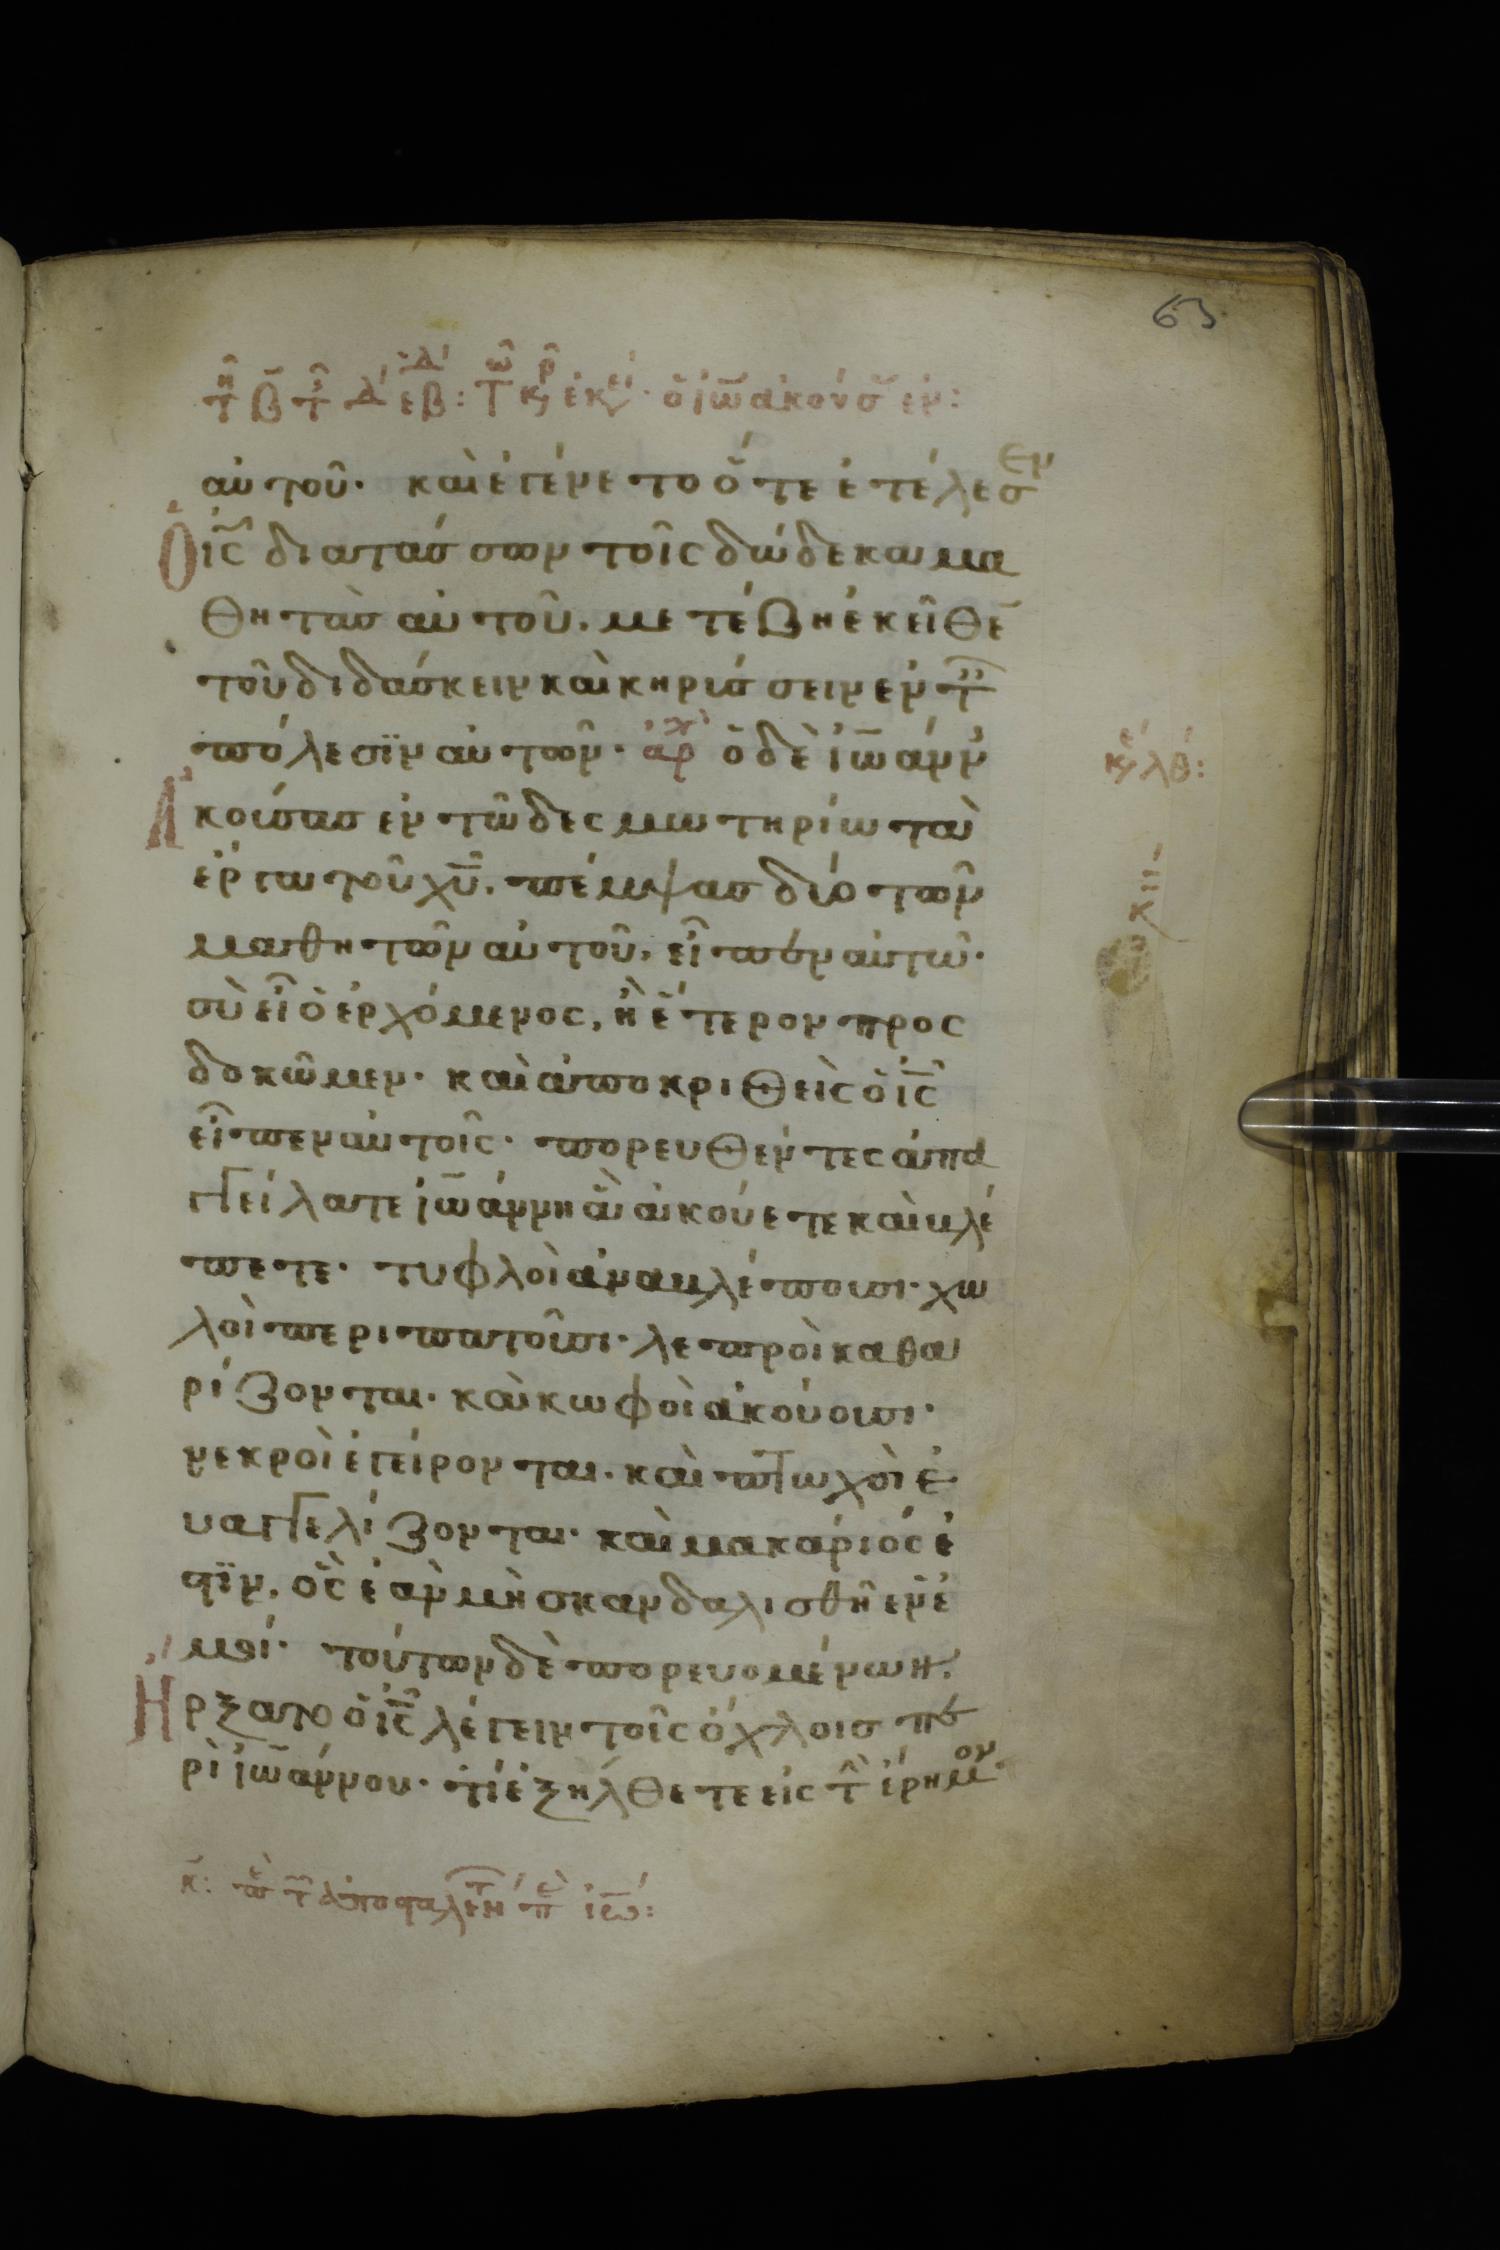 63
αὐτοῦ· καὶ ἐγένετο ὅτε ἐτέλεσεν
Ὁ ἰς̅ διατάσσων τοῖς δώδεκα μα
θητὰσ αὐτοῦ. μετέβη ἐκεῖθε̅
τοῦ διδάσκειν καὶ κηρύσσειν ἐν τ
πόλεσϊν αὐτῶν· ἀρχ ὁ δὲ ἰω̅άνν
κε λθ:
Ακούσασ ἐν τῶ δεσμωτηρίω τὰ
ἔργα τοῦ χυ̅. πέμψασ δύο τῶν
μαθητῶν αὐτοῦ, εἶπον αὐτῶ·
σὺ εἶ ὁ ἐρχόμενος, ἢ ἕτερον προς
δοκῶμεν· καὶ ἀποκριθεὶς ὁ ἰς̅
εἶπεν αὐτοῖς· πορευθέντες ἀπα
γγείλατε ἰω̅άννη ἃ ἀκούετε καὶ βλέ
πετε· τυφλοὶ ἀναβλέπουσι· χω
λοὶ περιπατοῦσι· λεπροὶ καθα
ρίζονται· καὶ κωφοὶ ἀκούουσι·
νεκροὶ ἐγείρονται· καὶ πτωχοὶ ἐ
υαγγελίζονται· καὶ μακάριός ἐ
στϊν, ὃς ἐὰν μὴ σκανδαλισθῆ ἐν ἐ
μοί· τούτων δὲ πορευομένων.
Ἤρξατο ὁ ἰς̅ λέγειν τοῖς ὄχλοισ πε
ρὶ ἰω̅άννου· τί ἐξήλθετε εἰς τ ἔρημον
κ: π τ ἀποσταλέντ π ἰω̅: